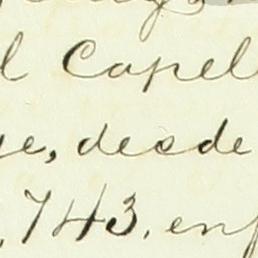 l Capel
e, desde
743. en